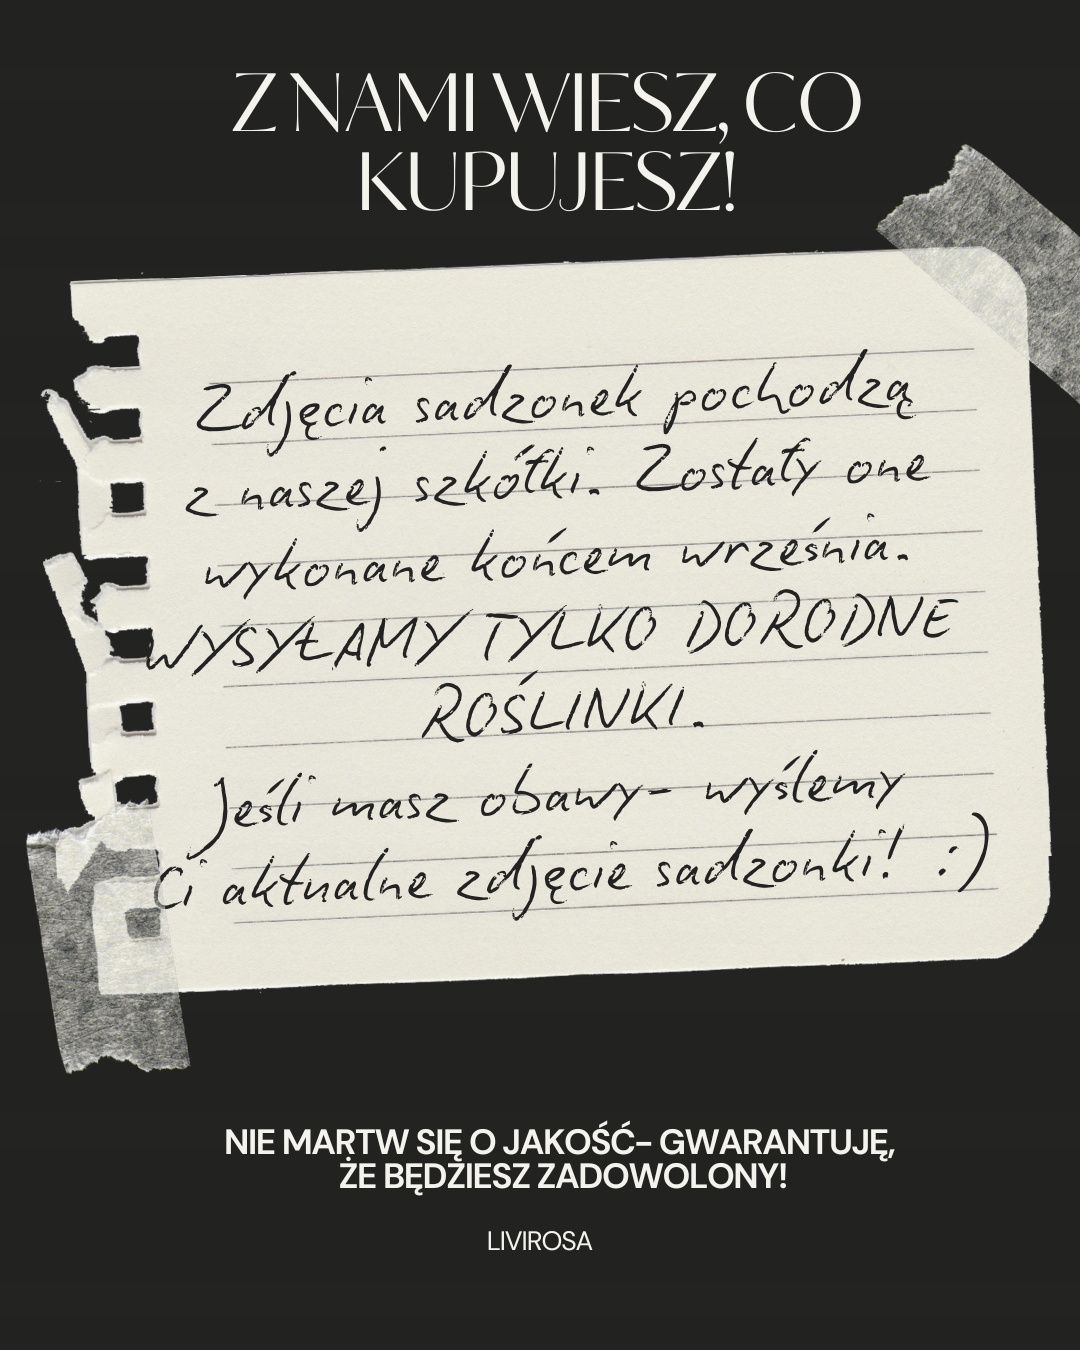 Z NAMI WIESZ, CO
KUPUJESZ!
Zdjęcia sadzonek pochodzą
z naszej szkółki. Zostały one
wykonane końcem września.
WYSYŁAMY TYLKO DORODNE
ROŚLINKI.
Jeśli masz obawy- wyślemy
Ci aktualne zdjęcie sadzonki! :)
NIE MARTW SIĘ O JAKOŚĆ- GWARANTUJĘ,
ŻE BĘDZIESZ ZADOWOLONY!
LIVIROSA